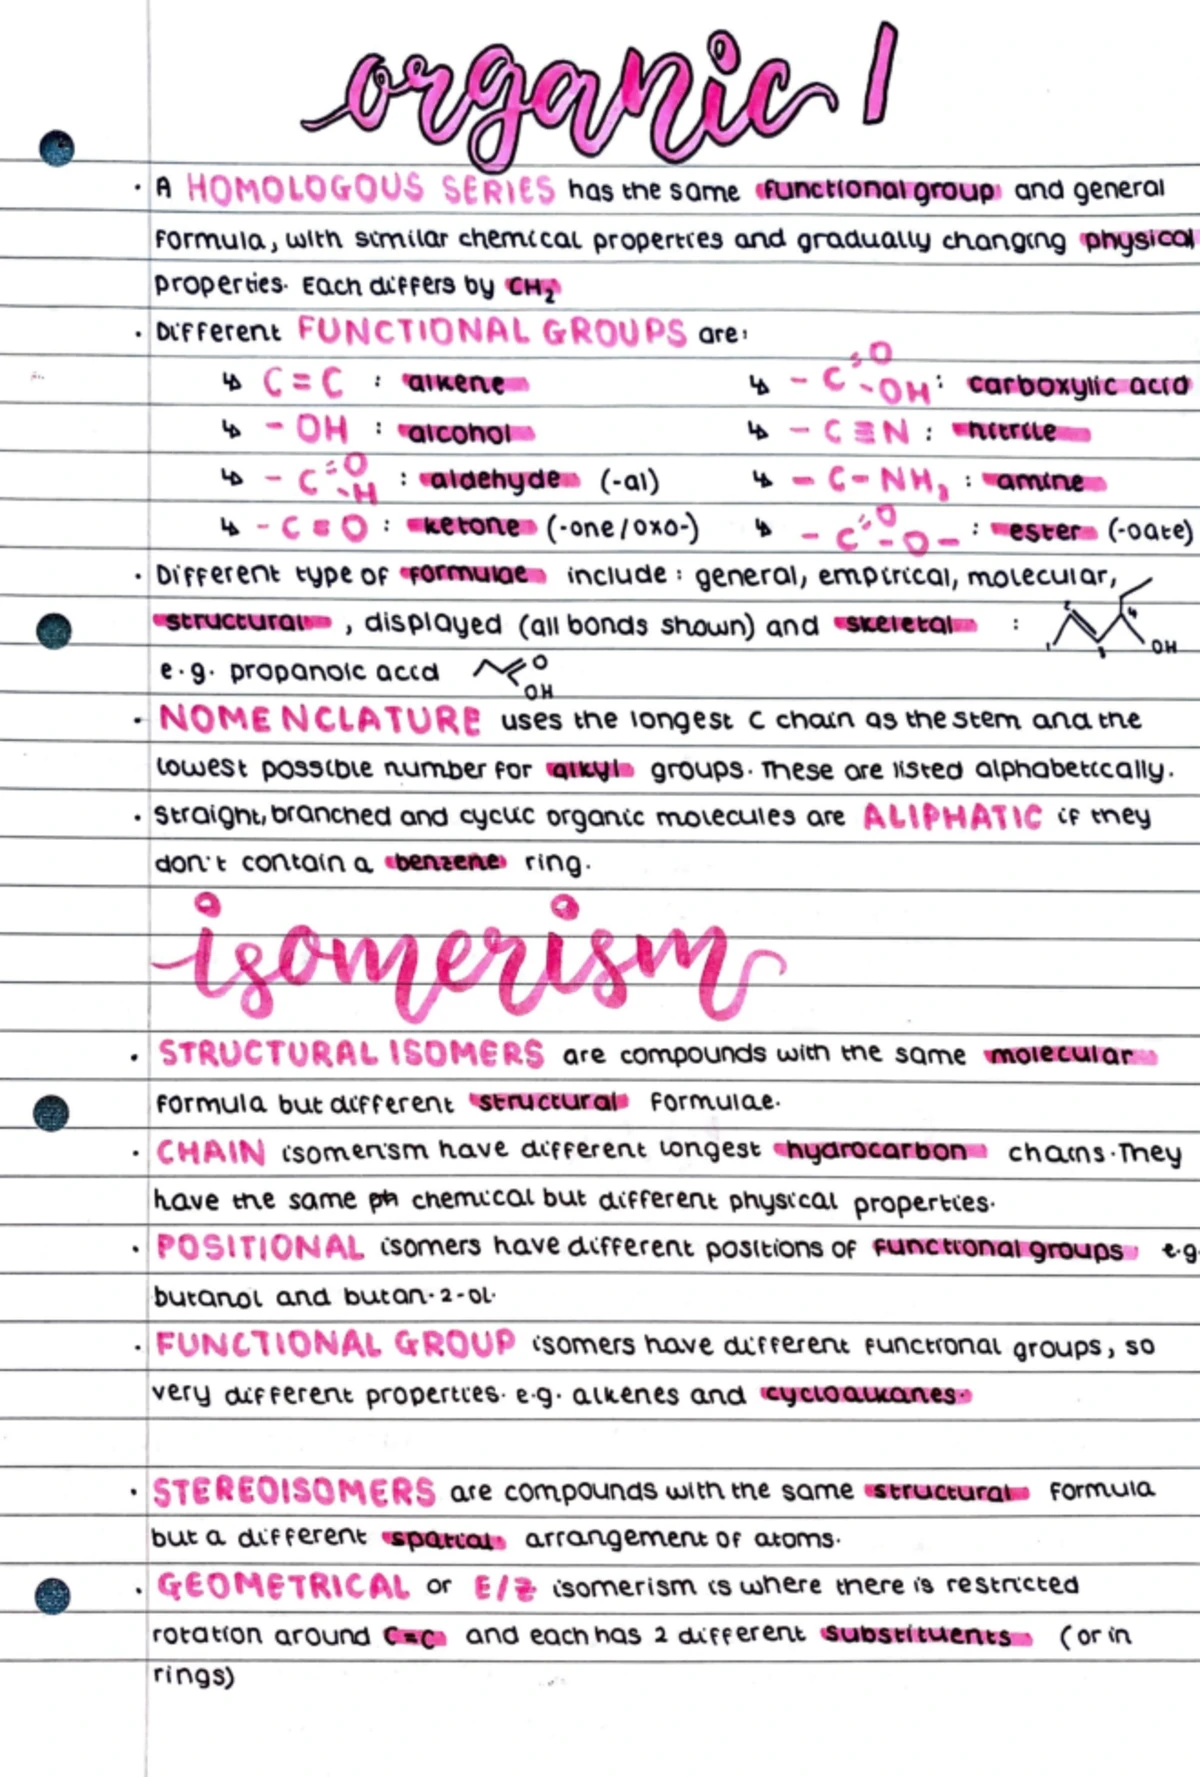 organic 1
· A HOMOLOGOUS SERIES has the same functional group and general
formula, with similar chemical properties and gradually changing physical
properties. Each differs by CH₂
· Different FUNCTIONAL GROUPS are:
↳ C=C : alkene
↳ -C=O -OH : carboxylic acid
↳ -OH : alcohol
↳ -C≡N : nitrile
↳ -C=O -H : aldehyde (-al)
↳ -C-NH₂ : amine
↳ -C=O : ketone (-one/oxo-)
↳ -C=O -O- : ester (-oate)
· Different type of formulae include: general, empirical, molecular,
structural, displayed (all bonds shown) and skeletal : 1 2 3 4 OH
e.g. propanoic acid O OH
· NOMENCLATURE uses the longest C chain as the stem and the
lowest possible number for alkyl groups. These are listed alphabetically.
· Straight, branched and cyclic organic molecules are ALIPHATIC if they
don't contain a benzene ring.
isomerism
· STRUCTURAL ISOMERS are compounds with the same molecular
formula but different structural formulae.
· CHAIN isomerism have different longest hydrocarbon chains. They
have the same chemical but different physical properties.
· POSITIONAL isomers have different positions of functional groups e.g.
butanol and butan-2-ol.
· FUNCTIONAL GROUP isomers have different functional groups, so
very different properties. e.g. alkenes and cycloalkanes.
· STEREOISOMERS are compounds with the same structural formula
but a different spatial arrangement of atoms.
· GEOMETRICAL or E/Z isomerism is where there is restricted
rotation around C=C and each has 2 different substituents (or in
rings)